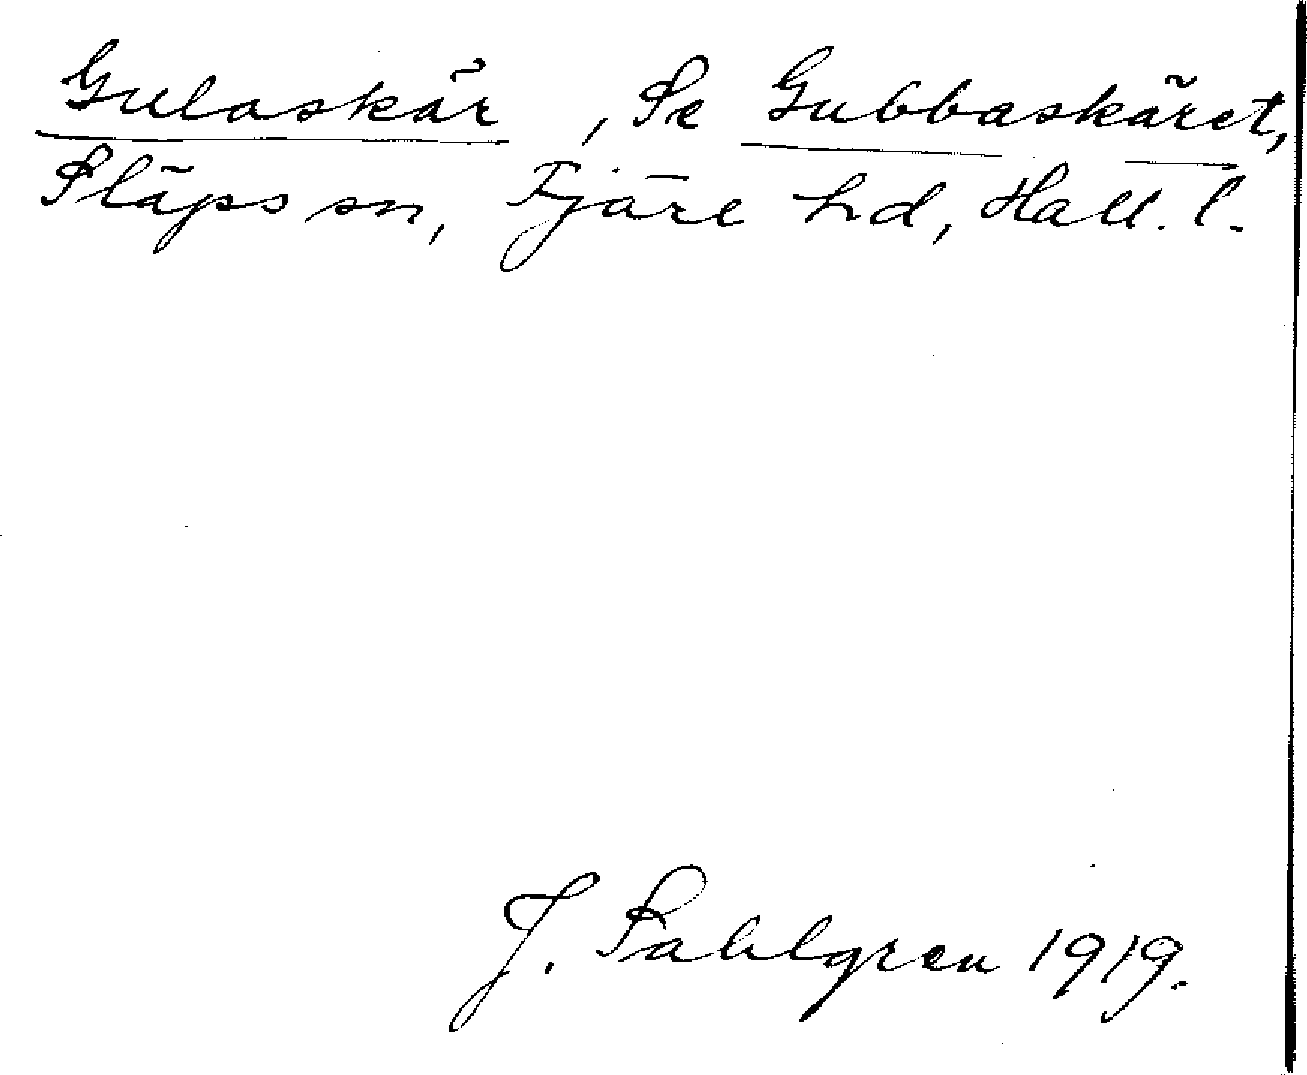 Gulaskär , Se Gubbaskäret,
Släps sn, Fjäre hd, Hall. l.
J. Sahlgren 1919.